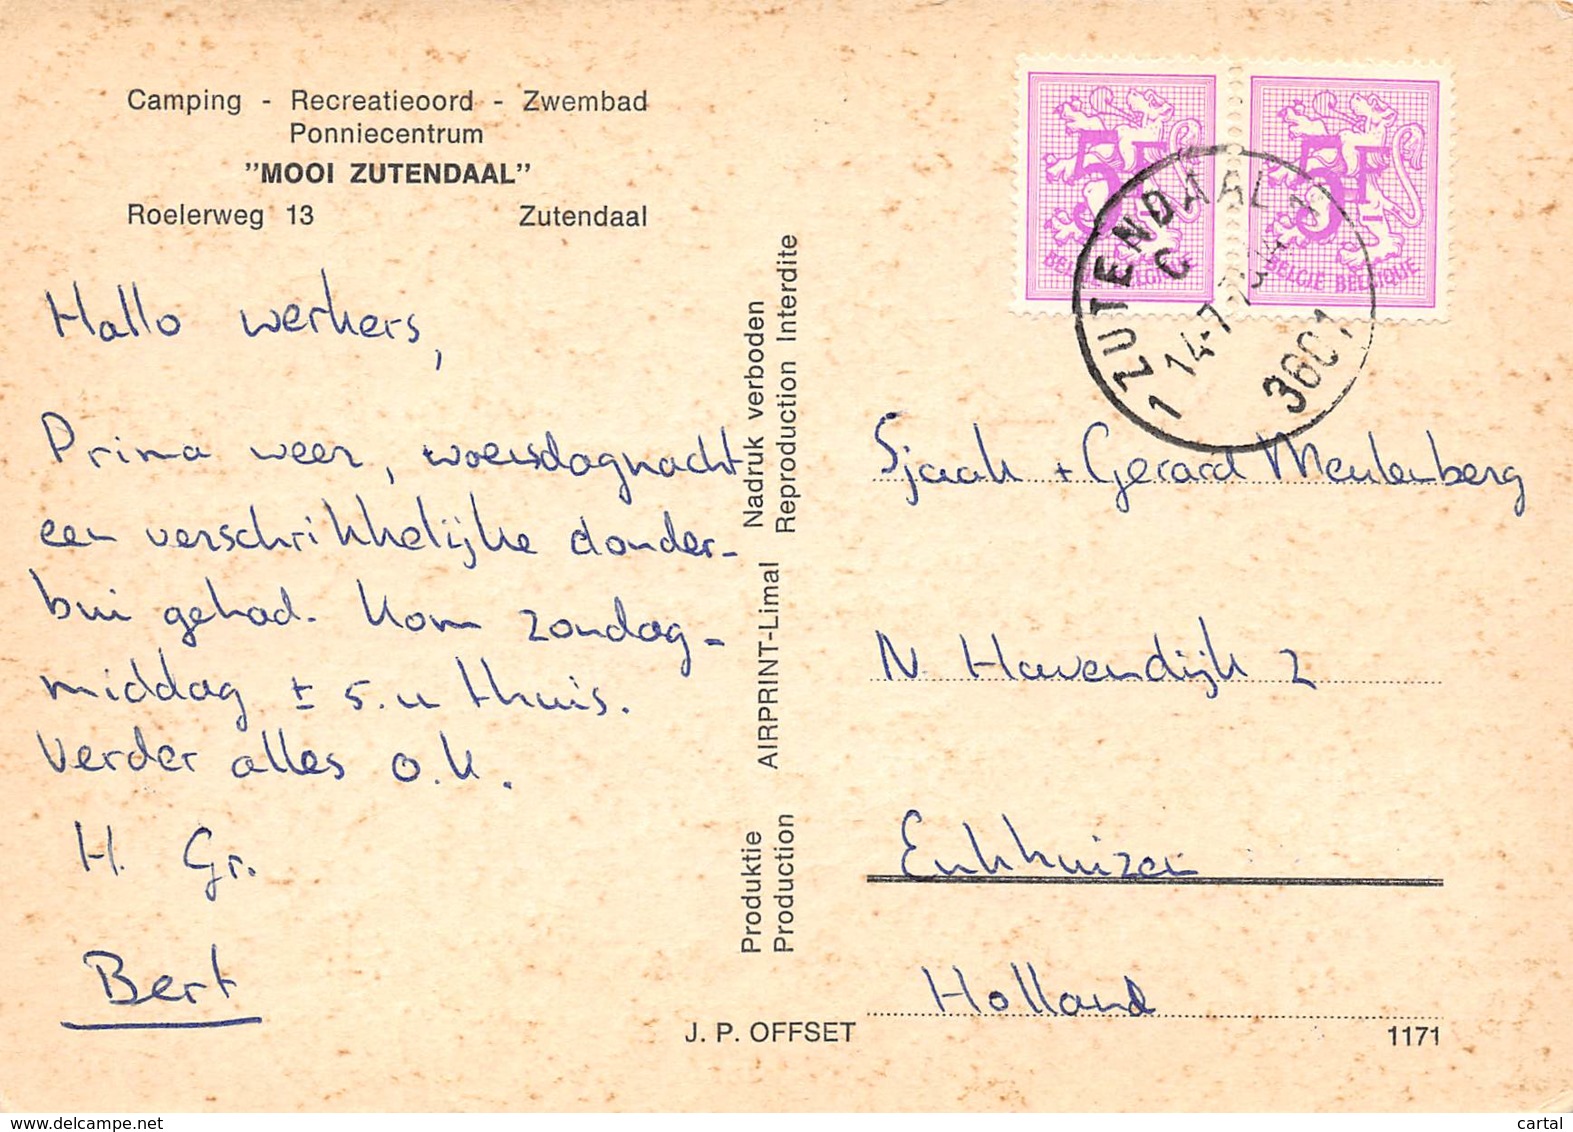 Camping - Recreatieoord - Zwembad
Ponniecentrum
"MOOI ZUTENDAAL"
Roelerweg 13 Zutendaal
Hallo werkers,
Prima weer, woensdagnacht
een verschrikkelijke donder-
bui gehad. Kom zondag-
middag ± 5.u thuis.
Verder alles o.k.
H. Gr.
Bert
Nadruk verboden
Reproduction Interdite
AIRPRINT-Limal
Produktie
Production
J. P. OFFSET
5F 5F
BELGIE BELGIQUE
ZUTENDAAL
C
14-7-
1 3601
Sjaak + Gerard Meulenberg
N. Havendijk 2
Enkhuizen
Holland
1171
delcampe.net
cartal